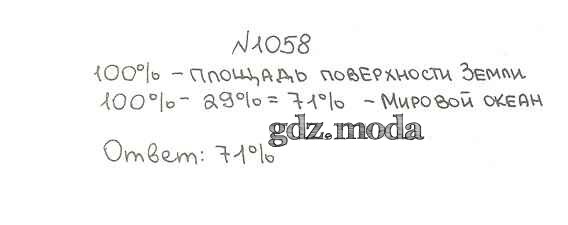 №1058
100% - площадь поверхности Земли
100% - 29% = 71% - Мировой океан
gdz.moda
Ответ: 71%